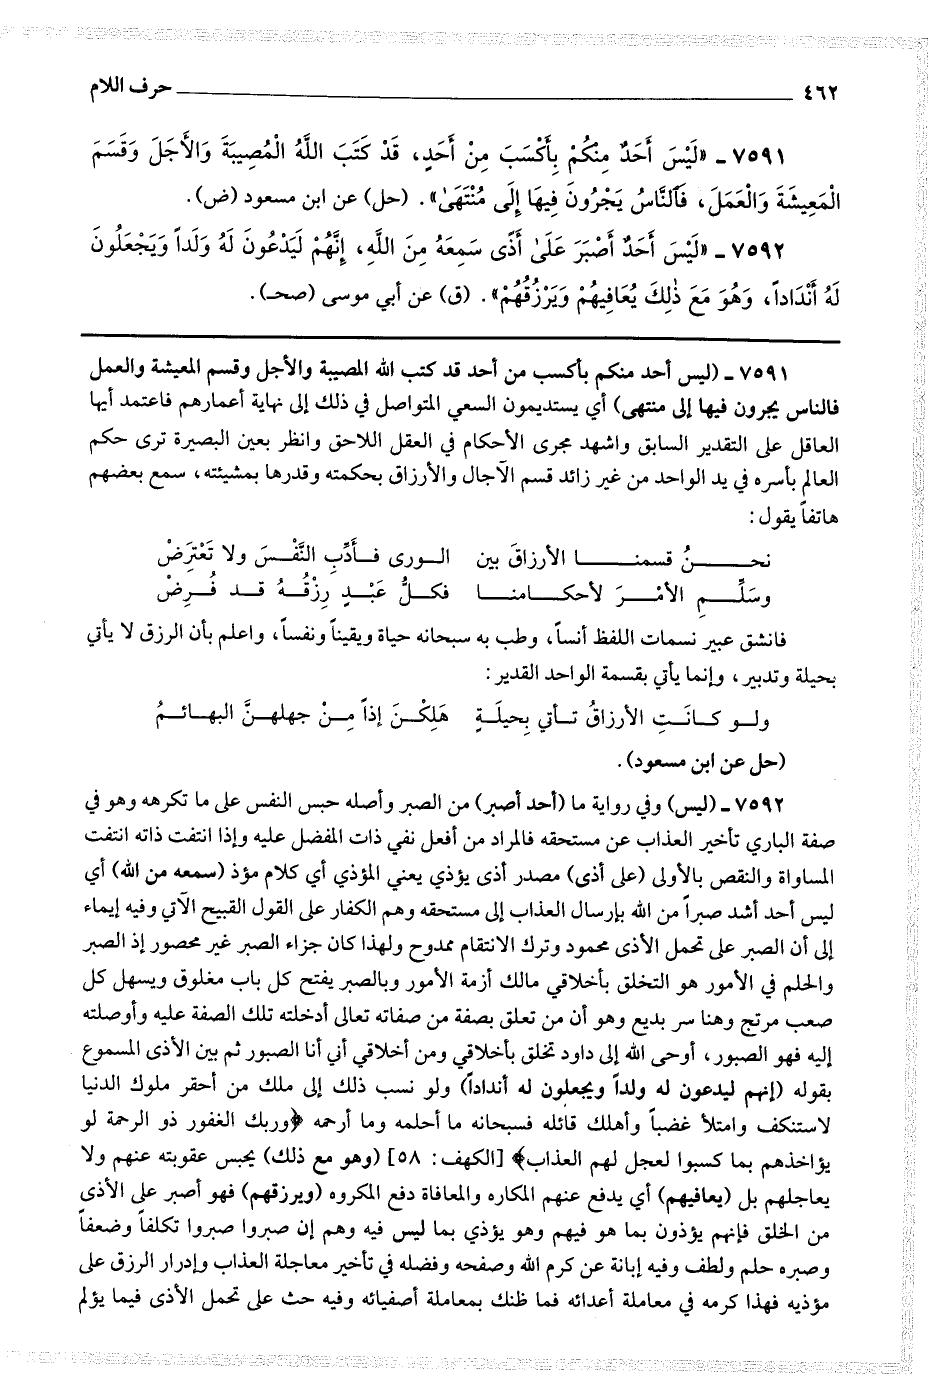 ٤٦٢ حرف اللام
٧٥٩١ ـ «لَيْسَ أَحَدٌ مِنْكُمْ بِأَكْسَبَ مِنْ أَحَدٍ، قَدْ كَتَبَ اللَّهُ الْمُصِيبَةَ وَالأَجَلَ وَقَسَمَ
الْمَعِيشَةَ وَالْعَمَلَ، فَٱلنَّاسُ يَجْرُونَ فِيهَا إِلَى مُنْتَهَىٰ». (حل) عن ابن مسعود (ض).
٧٥٩٢ ـ «لَيْسَ أَحَدٌ أَصْبَرَ عَلَىٰ أَذًى سَمِعَهُ مِنَ اللَّهِ، إِنَّهُمْ لَيَدْعُونَ لَهُ وَلَداً وَيَجْعَلُونَ
لَهُ أَنْدَاداً، وَهُوَ مَعَ ذٰلِكَ يُعَافِيهُمْ وَيَرْزُقُهُمْ». (ق) عن أبي موسى (صحـ).
٧٥٩١ ـ (ليس أحد منكم بأكسب من أحد قد كتب الله المصيبة والأجل وقسم المعيشة والعمل
فالناس يجرون فيها إلى منتهى) أي يستديمون السعي المتواصل في ذلك إلى نهاية أعمارهم فاعتمد أيها
العاقل على التقدير السابق واشهد مجرى الأحكام في العقل اللاحق وانظر بعين البصيرة ترى حكم
العالم بأسره في يد الواحد من غير زائد قسم الآجال والأرزاق بحكمته وقدرها بمشيئته، سمع بعضهم
هاتفاً يقول:
نحـنُ قسمنـا الأرزاقَ بين الـورى فـأَدِّبِ النَّفْسَ ولا تَعْتَرِضْ
وسَلِّـمِ الأمْـرَ لأحكـامنـا فكـلُّ عَبْـدٍ رِزْقُـهُ قـد فُـرِضْ
فانشق عبير نسمات اللفظ أنساً، وطب به سبحانه حياة ويقيناً ونفساً، واعلم بأن الرزق لا يأتي
بحيلة وتدبير، وإنما يأتي بقسمة الواحد القدير:
ولـو كـانَـتِ الأرزاقُ تـأتي بِحيلَـةٍ هَلِكْـنَ إذاً مِـنْ جهلهـنَّ البهـائـمُ
(حل عن ابن مسعود).
٧٥٩٢ ـ (ليس) وفي رواية ما (أحد أصبر) من الصبر وأصله حبس النفس على ما تكرهه وهو في
صفة الباري تأخير العذاب عن مستحقه فالمراد من أفعل نفي ذات المفضل عليه وإذا انتفت ذاته انتفت
المساواة والنقص بالأولى (على أذى) مصدر أذى يؤذي يعني المؤذي أي كلام مؤذ (سمعه من الله) أي
ليس أحد أشد صبراً من الله بإرسال العذاب إلى مستحقه وهم الكفار على القول القبيح الآتي وفيه إيماء
إلى أن الصبر على تحمل الأذى محمود وترك الانتقام ممدوح ولهذا كان جزاء الصبر غير محصور إذ الصبر
والحلم في الأمور هو التخلق بأخلاقي مالك أزمة الأمور وبالصبر يفتح كل باب مغلوق ويسهل كل
صعب مرتج وهنا سر بديع وهو أن من تعلق بصفة من صفاته تعالى أدخلته تلك الصفة عليه وأوصلته
إليه فهو الصبور، أوحى الله إلى داود تخلق بأخلاقي ومن أخلاقي أني أنا الصبور ثم بين الأذى المسموع
بقوله (إنهم ليدعون له ولداً ويجعلون له أنداداً) ولو نسب ذلك إلى ملك من أحقر ملوك الدنيا
لاستنكف وامتلأ غضباً وأهلك قائله فسبحانه ما أحلمه وما أرحمه ﴿وربك الغفور ذو الرحمة لو
يؤاخذهم بما كسبوا لعجل لهم العذاب﴾ [الكهف: ٥٨] (وهو مع ذلك) يحبس عقوبته عنهم ولا
يعاجلهم بل (يعافيهم) أي يدفع عنهم المكاره والمعافاة دفع المكروه (ويرزقهم) فهو أصبر على الأذى
من الخلق فإنهم يؤذون بما هو فيهم وهو يؤذي بما ليس فيه وهم إن صبروا صبروا تكلفاً وضعفاً
وصبره حلم ولطف وفيه إبانة عن كرم الله وصفحه وفضله في تأخير معاجلة العذاب وإدرار الرزق على
مؤذيه فهذا كرمه في معاملة أعدائه فما ظنك بمعاملة أصفيائه وفيه حث على تحمل الأذى فيما يؤلم